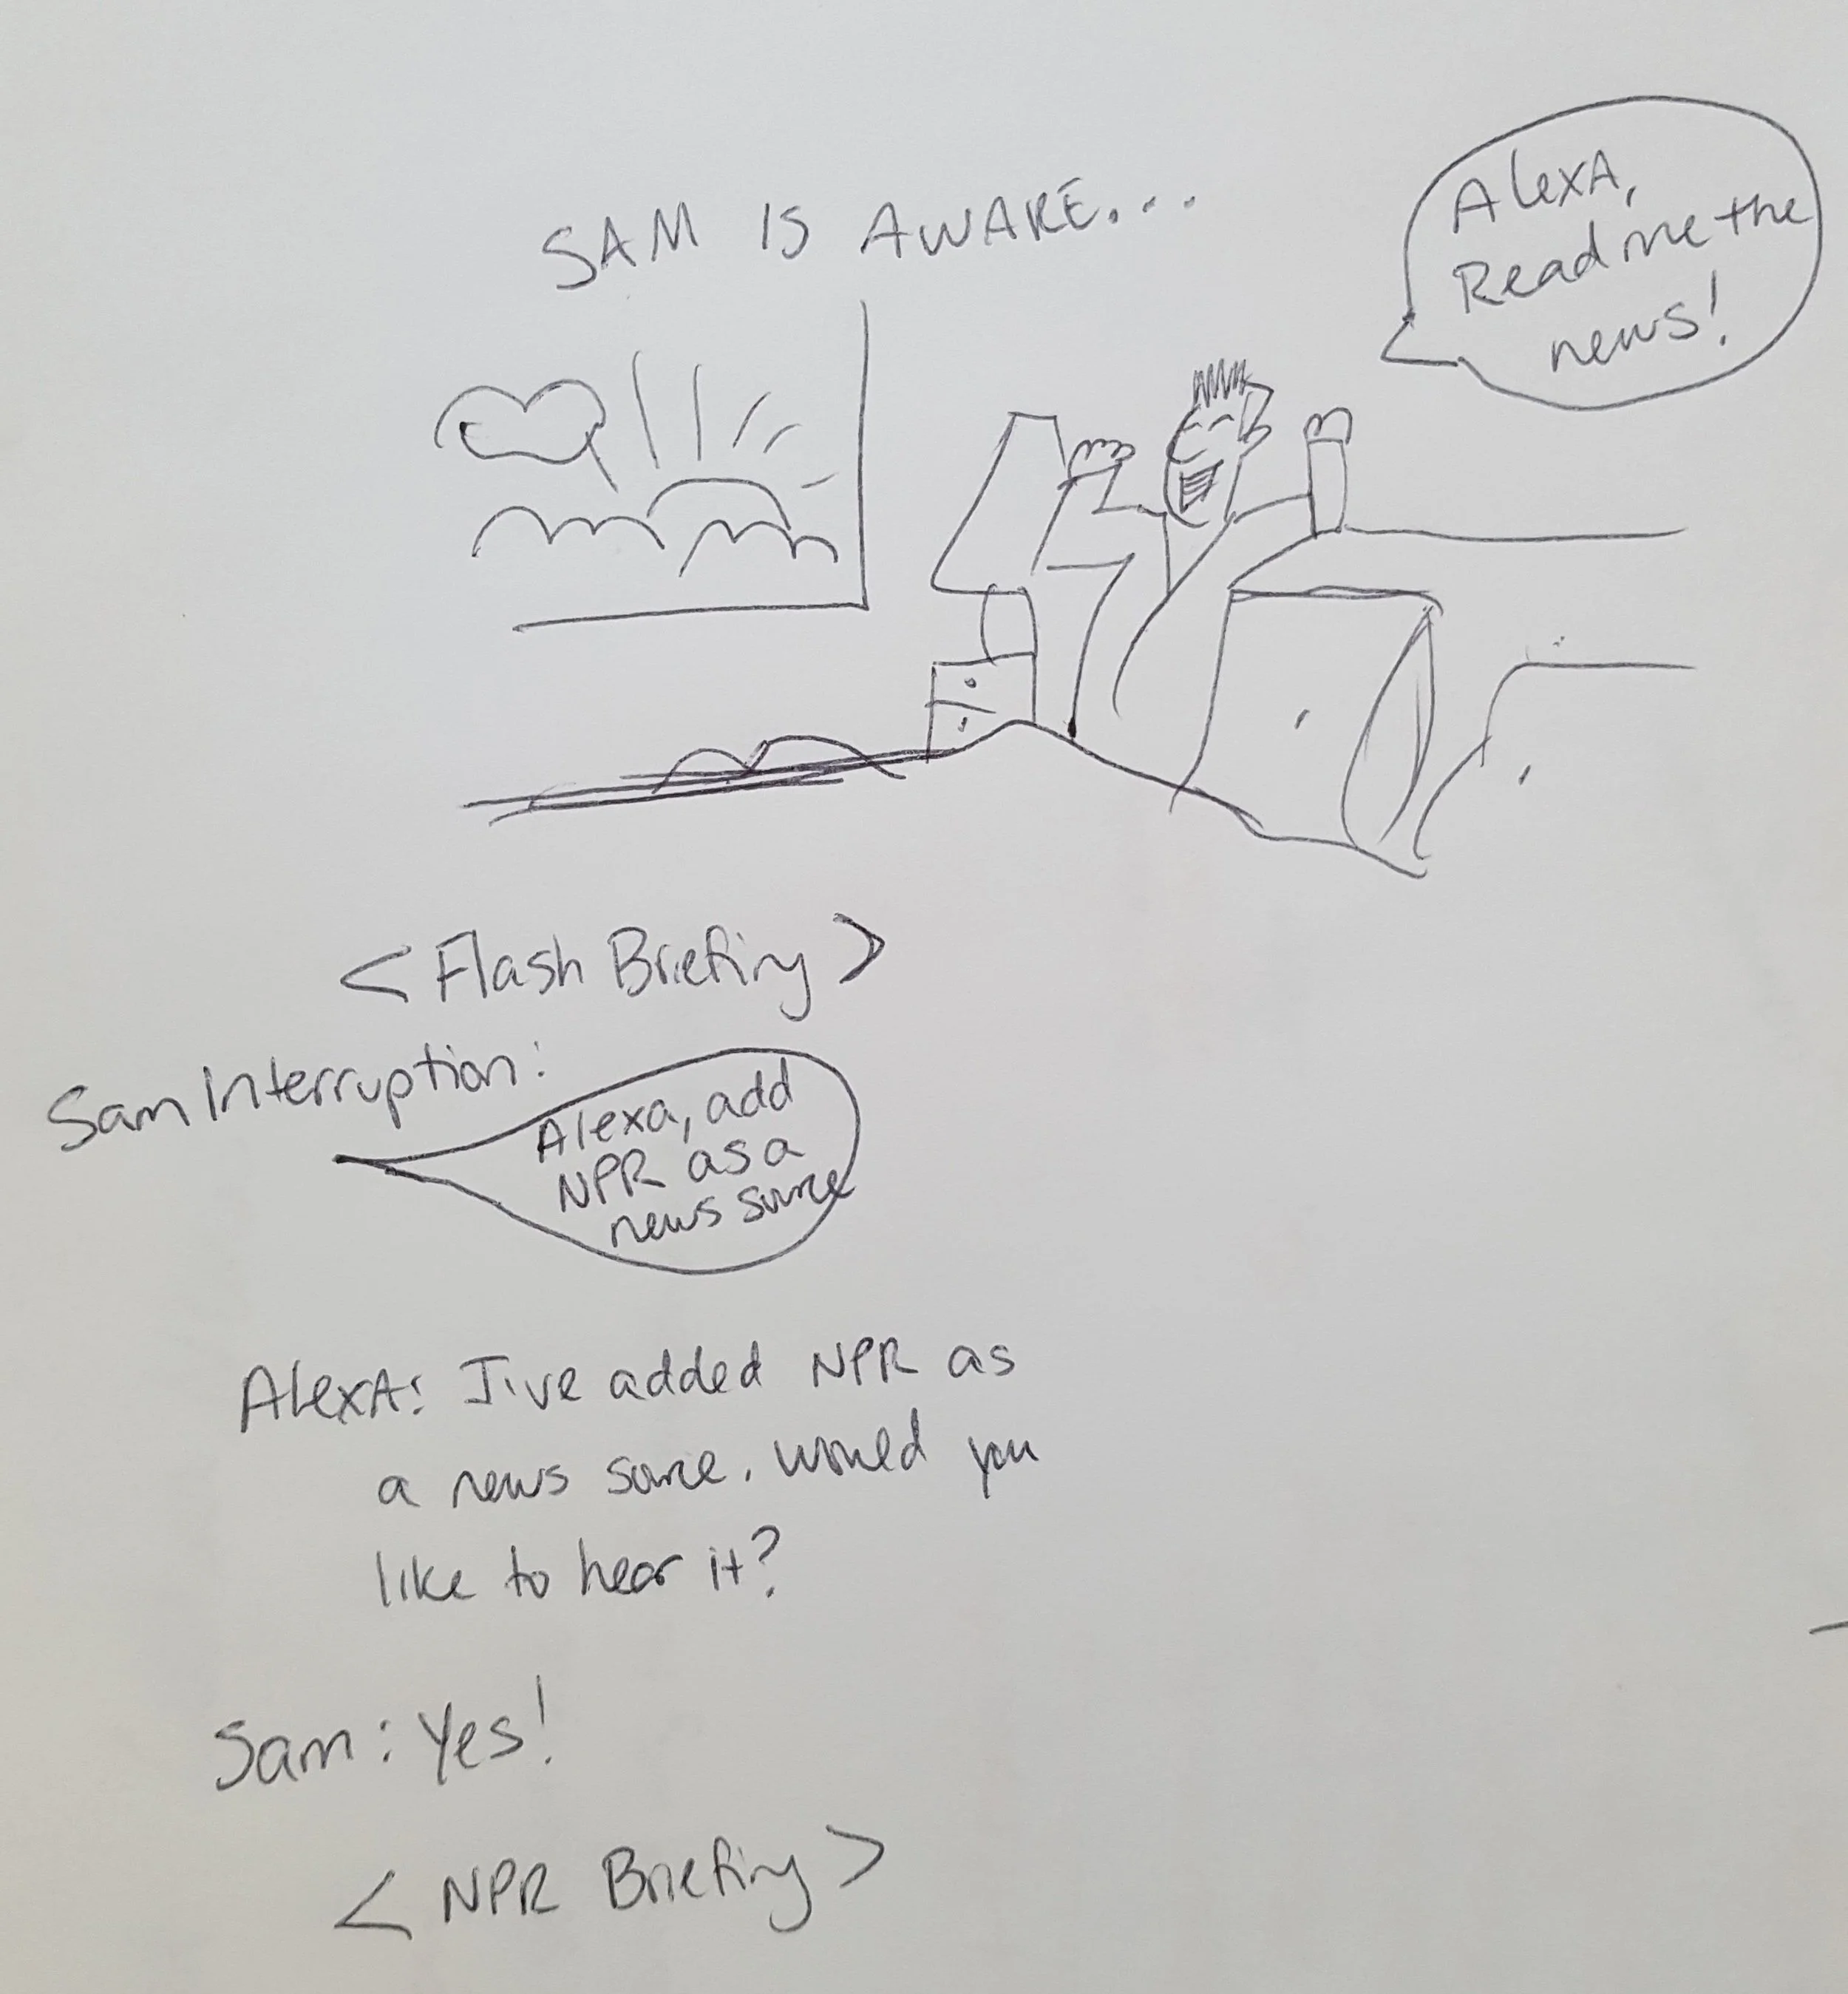 SAM IS AWARE...
AlexA,
Read me the
news!
<Flash Briefing>
Sam Interruption:
Alexa, add
NPR as a
news source
AlexA: I've added NPR as
a news source. would you
like to hear it?
Sam: Yes!
<NPR Briefing>